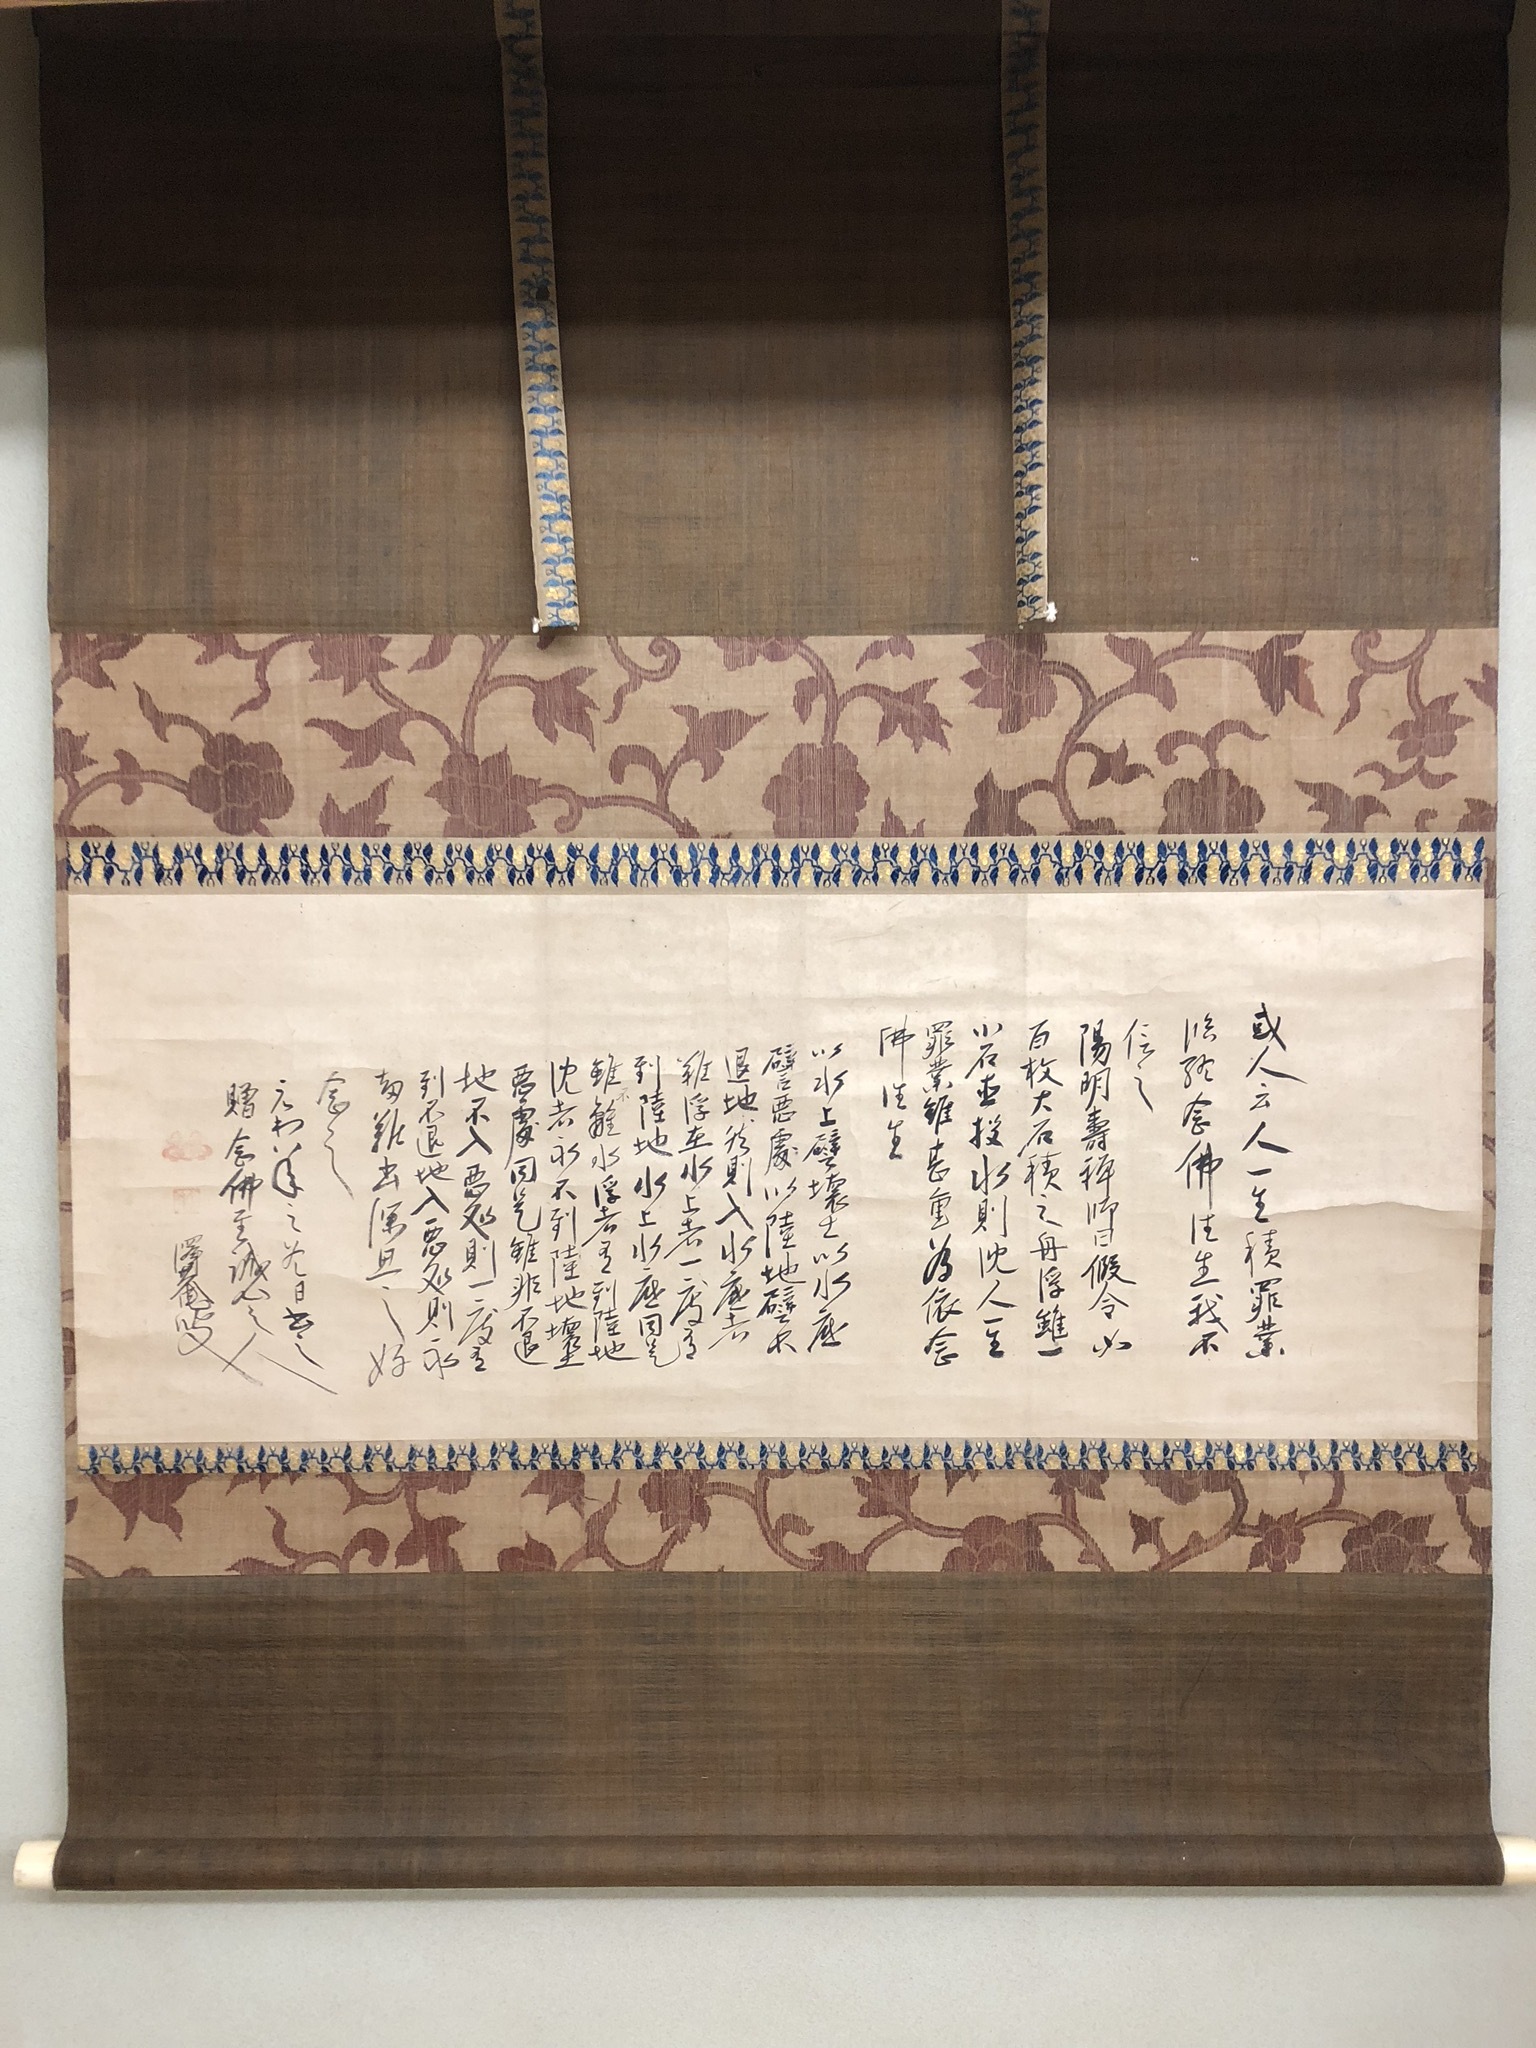 或人云人一生積罪業
臨終念佛往生我不
信之
陽明壽禪師曰假令如
百枚大石積之舟浮雖一
小石直投水則沈人一生
罪業雖甚重為依念
佛往生
以水上譬壞土以水底
譬惡處以陸地譬不
退地然則入水底者
難浮在水上者一度有
到陸地水上水底同是
雖不離水浮者有到陸地
沈者永不到陸地壞土
惡處同是雖非不退
地不入惡處則一度有
到不退地入惡處則永
劫難出深思之好
念之
元和年之日書之
贈念佛至誠心之人
澤菴叟